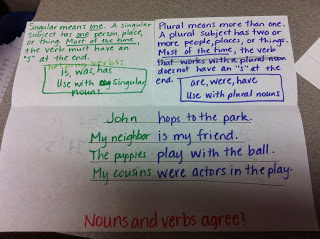 Singular means one. A singular
subject has one person, place,
or thing. Most of the time,
the verb must have an
"S" at the end.
is, was, has
Use with singular
nouns.
Plural means more than one.
A plural subject has two or
more people, places, or things.
Most of the time, the verb
that works with a plural noun
does not have an "S" at the
end.
are, were, have
Use with plural nouns
John hops to the park.
My neighbor is my friend.
The puppies play with the ball.
My cousins were actors in the play.
Nouns and verbs agree!